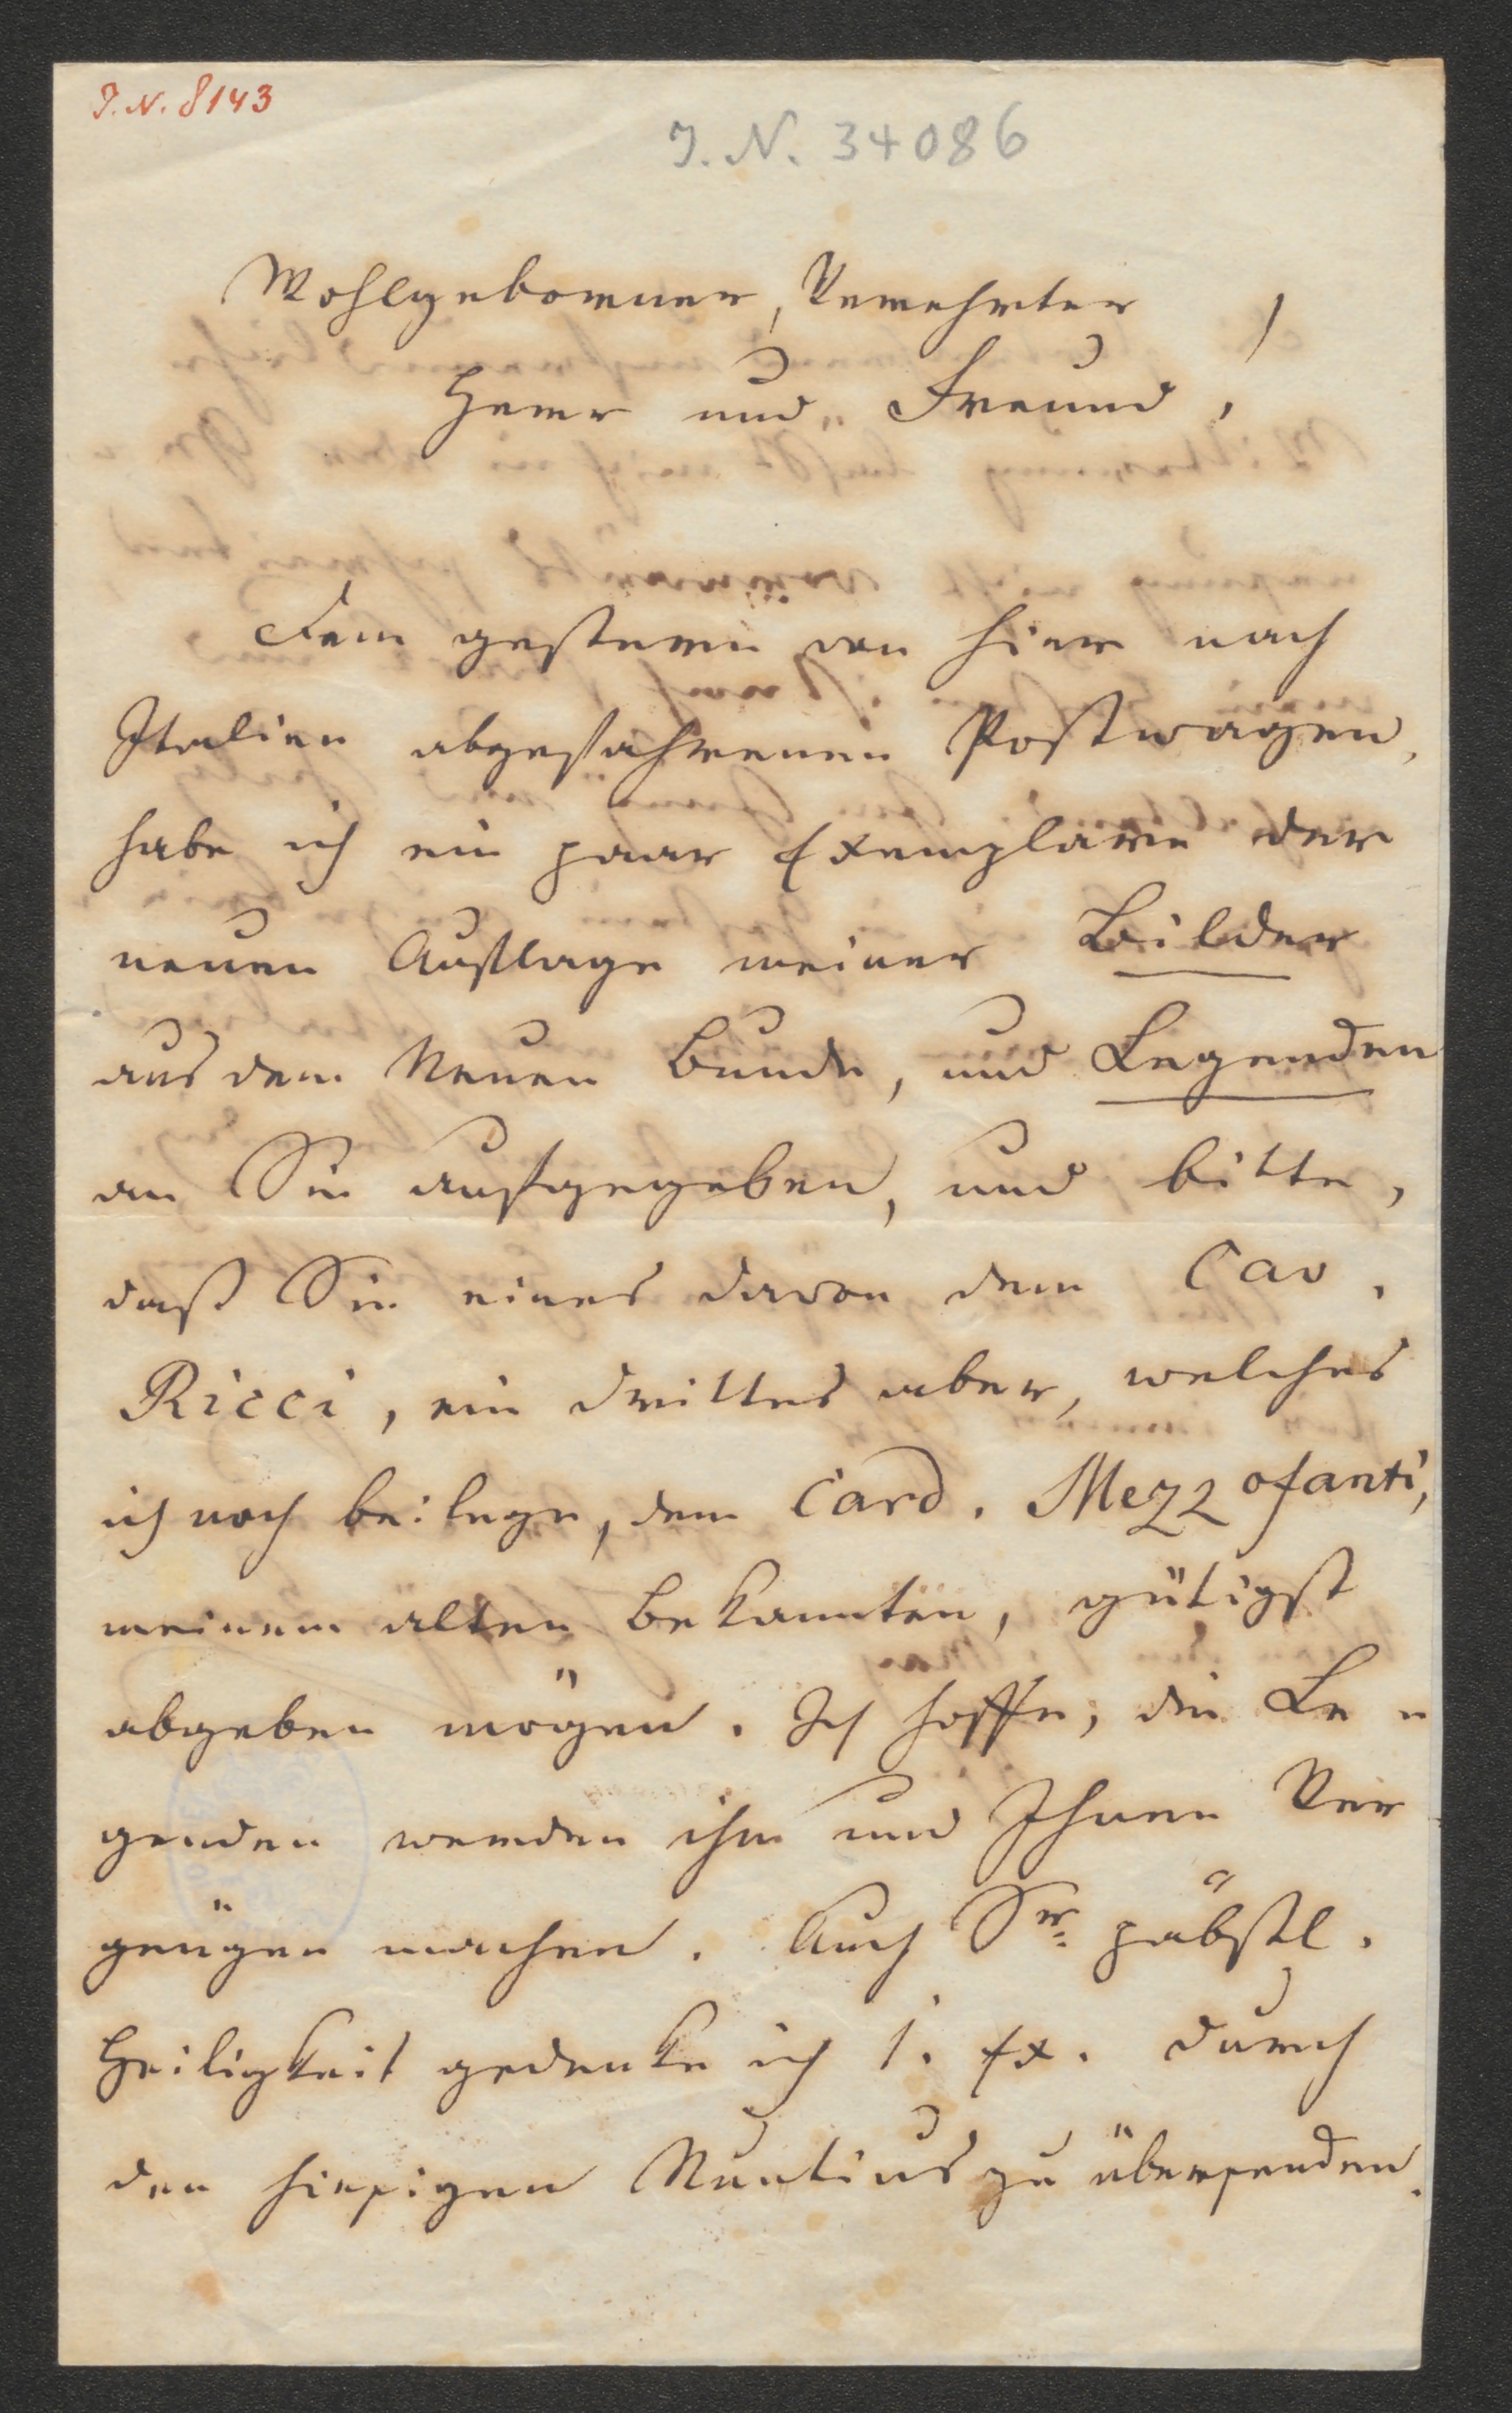 I. N. 8143
I. N. 34086
Wohlgeborner, Verehrter
Herr und Freund!
Dem gestern von hier nach
Italien abgefahrenen Postwagen,
habe ich ein paar Exemplare der
neuen Auflage meiner Bilder
aus dem Neuen Bunde, und Legenden
an Sie aufgegeben, und bitte,
daß Sie eines davon dem Cav.
Ricci, ein drittes aber, welches
ich noch beilege, dem Card. Mezzofanti,
meinem alten Bekannten, gütigst
abgeben mögen. Ich hoffe, die Le-
genden werden ihm und Ihnen Ver-
gnügen machen. Auch Sr. päbstl.
Heiligkeit gedenke ich 1. Ex. durch
den hiesigen Nuntius zu übersenden.